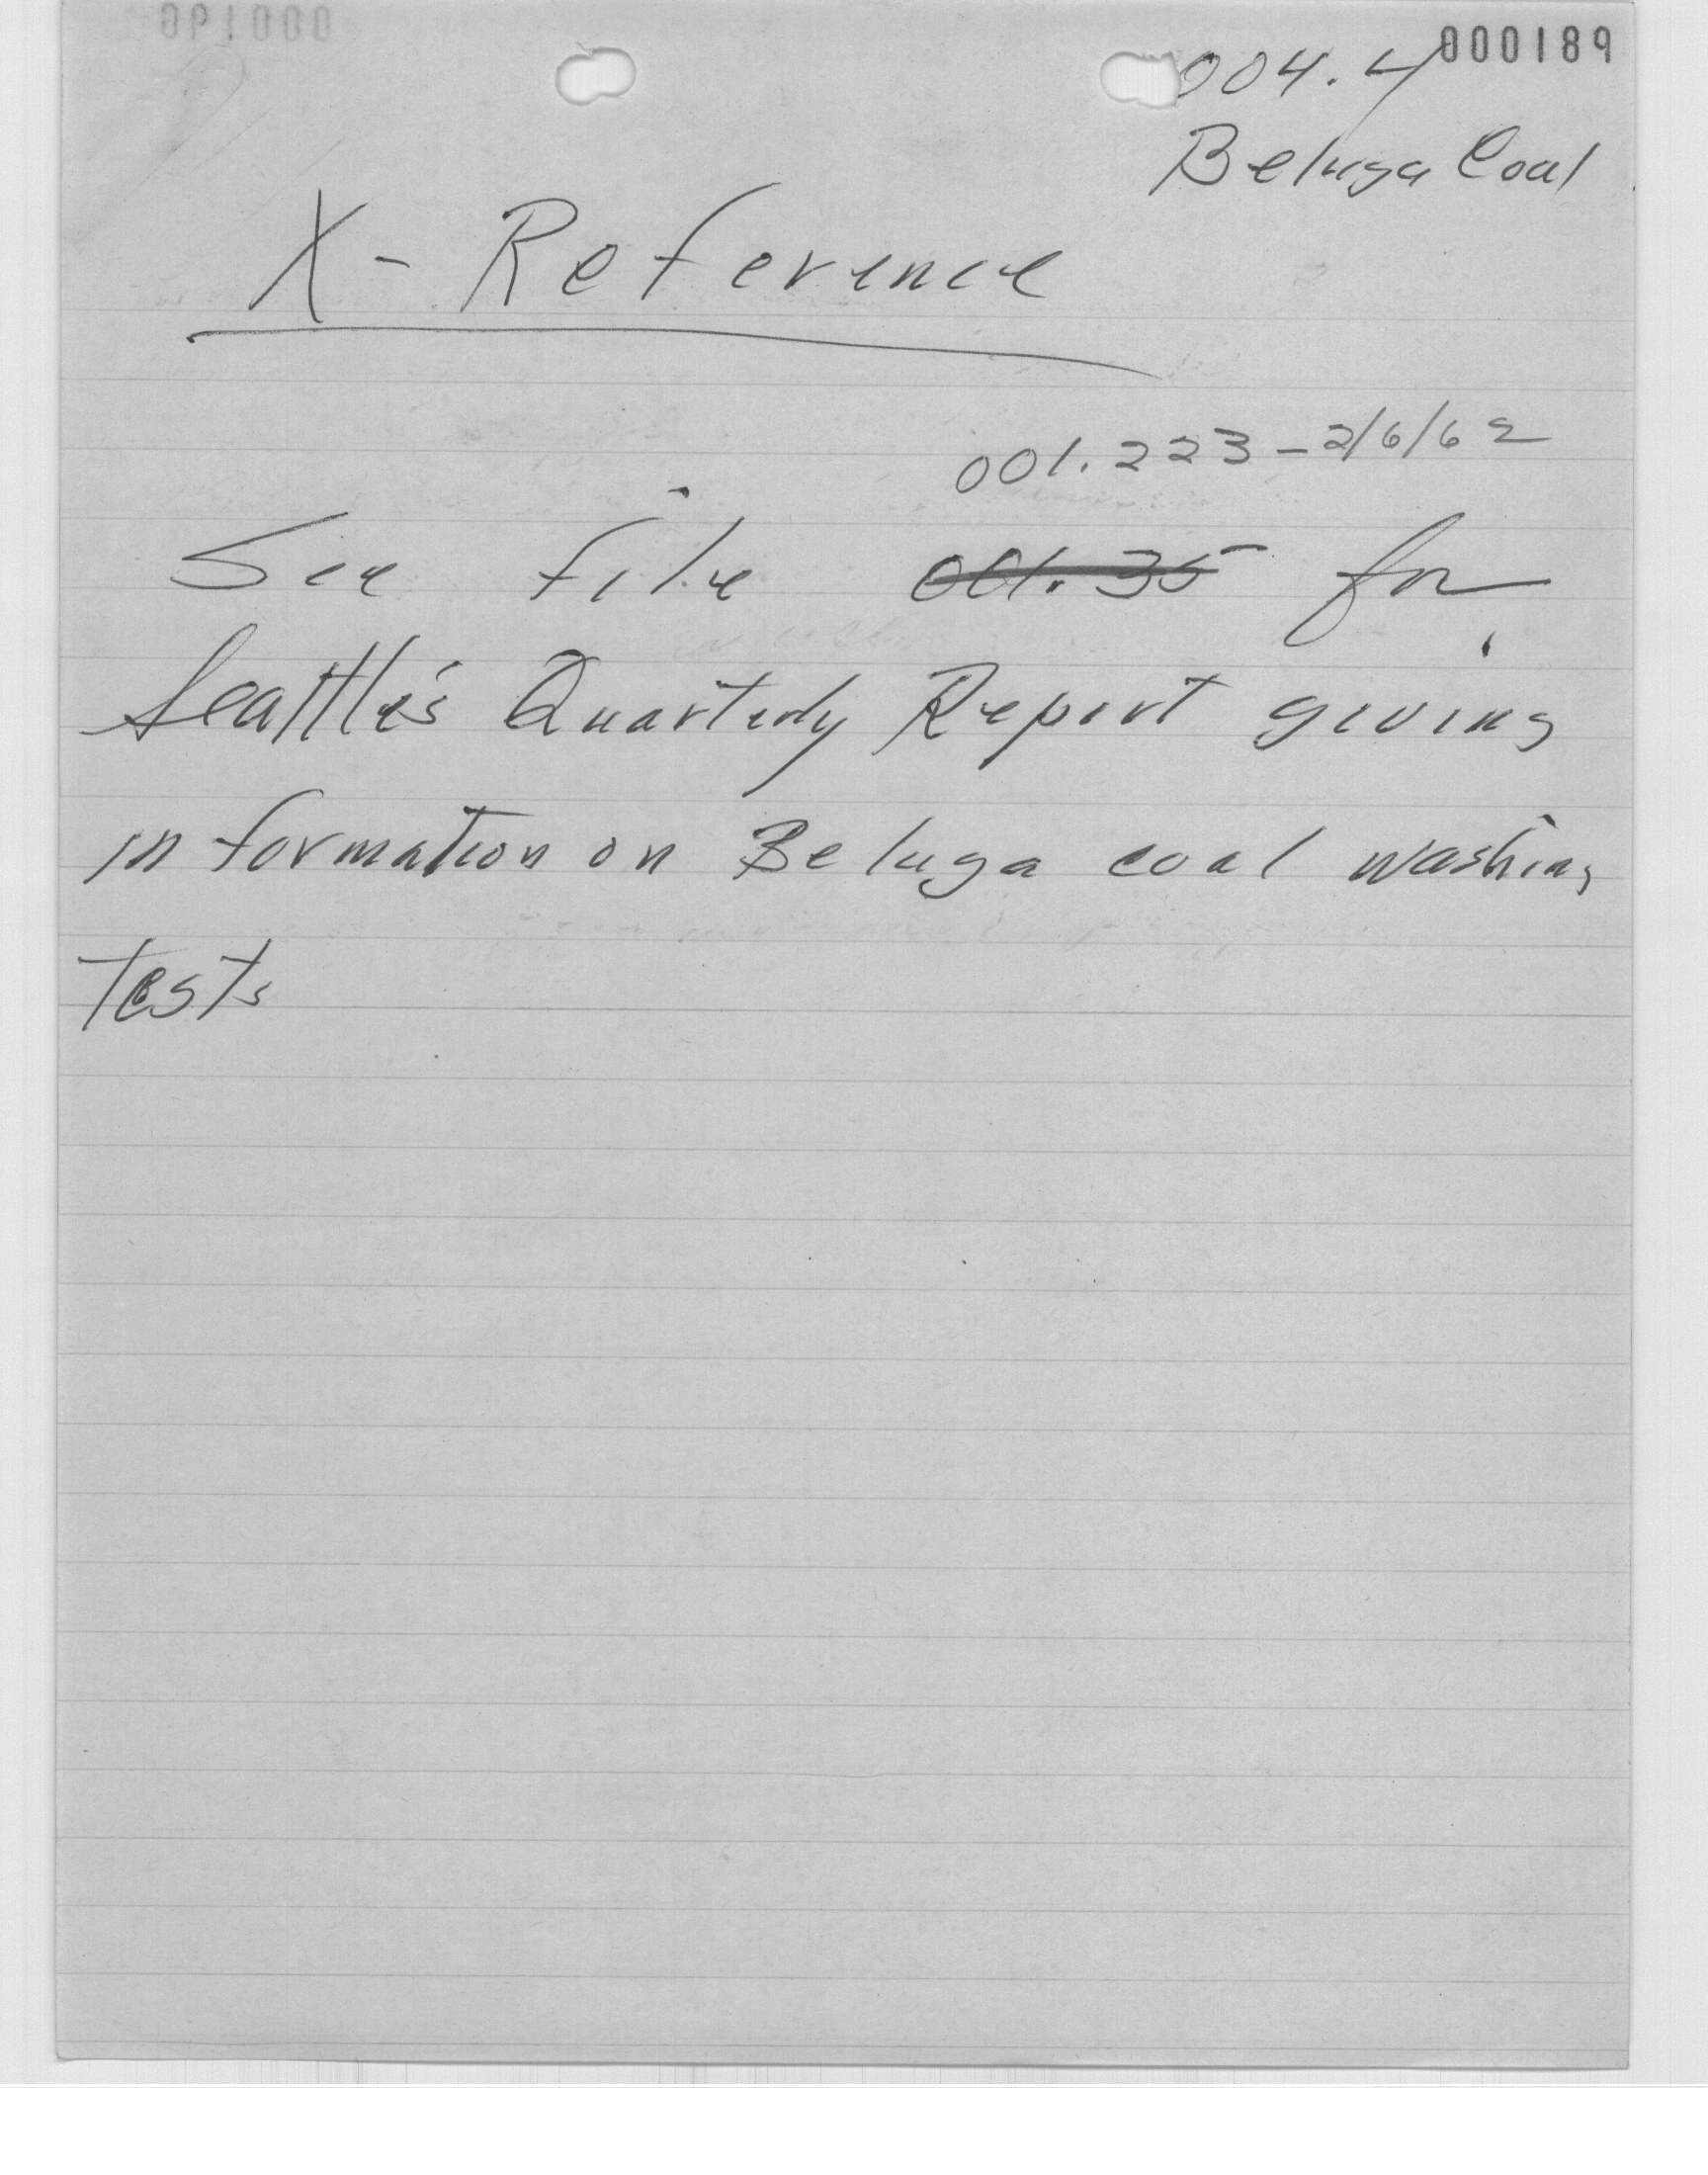 000189
004.4
Beluga Coal
X- Reference
001.223 - 2/6/62
See file 001.35 for
Seattle's Quarterly Report giving
information on Beluga coal washing
tests